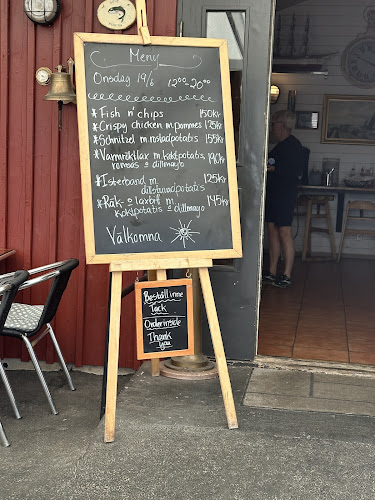 Meny
Onsdag 19/6 12⁰⁰-20⁰⁰
* Fish n' chips 150kr
* Crispy chicken m. pommes 135kr
* Schnitzel m. rostadpotatis 155kr
* Varmröktlax m. koktpotatis,
romsås o dillmayo 190kr
* Isterband m. 125kr
dillstuvadpotatis
* Räk- o laxbrif m. 145kr
koktpotatis o dillmayo
Välkomna
Beställ inne
Tack
Order inside
Thank
you